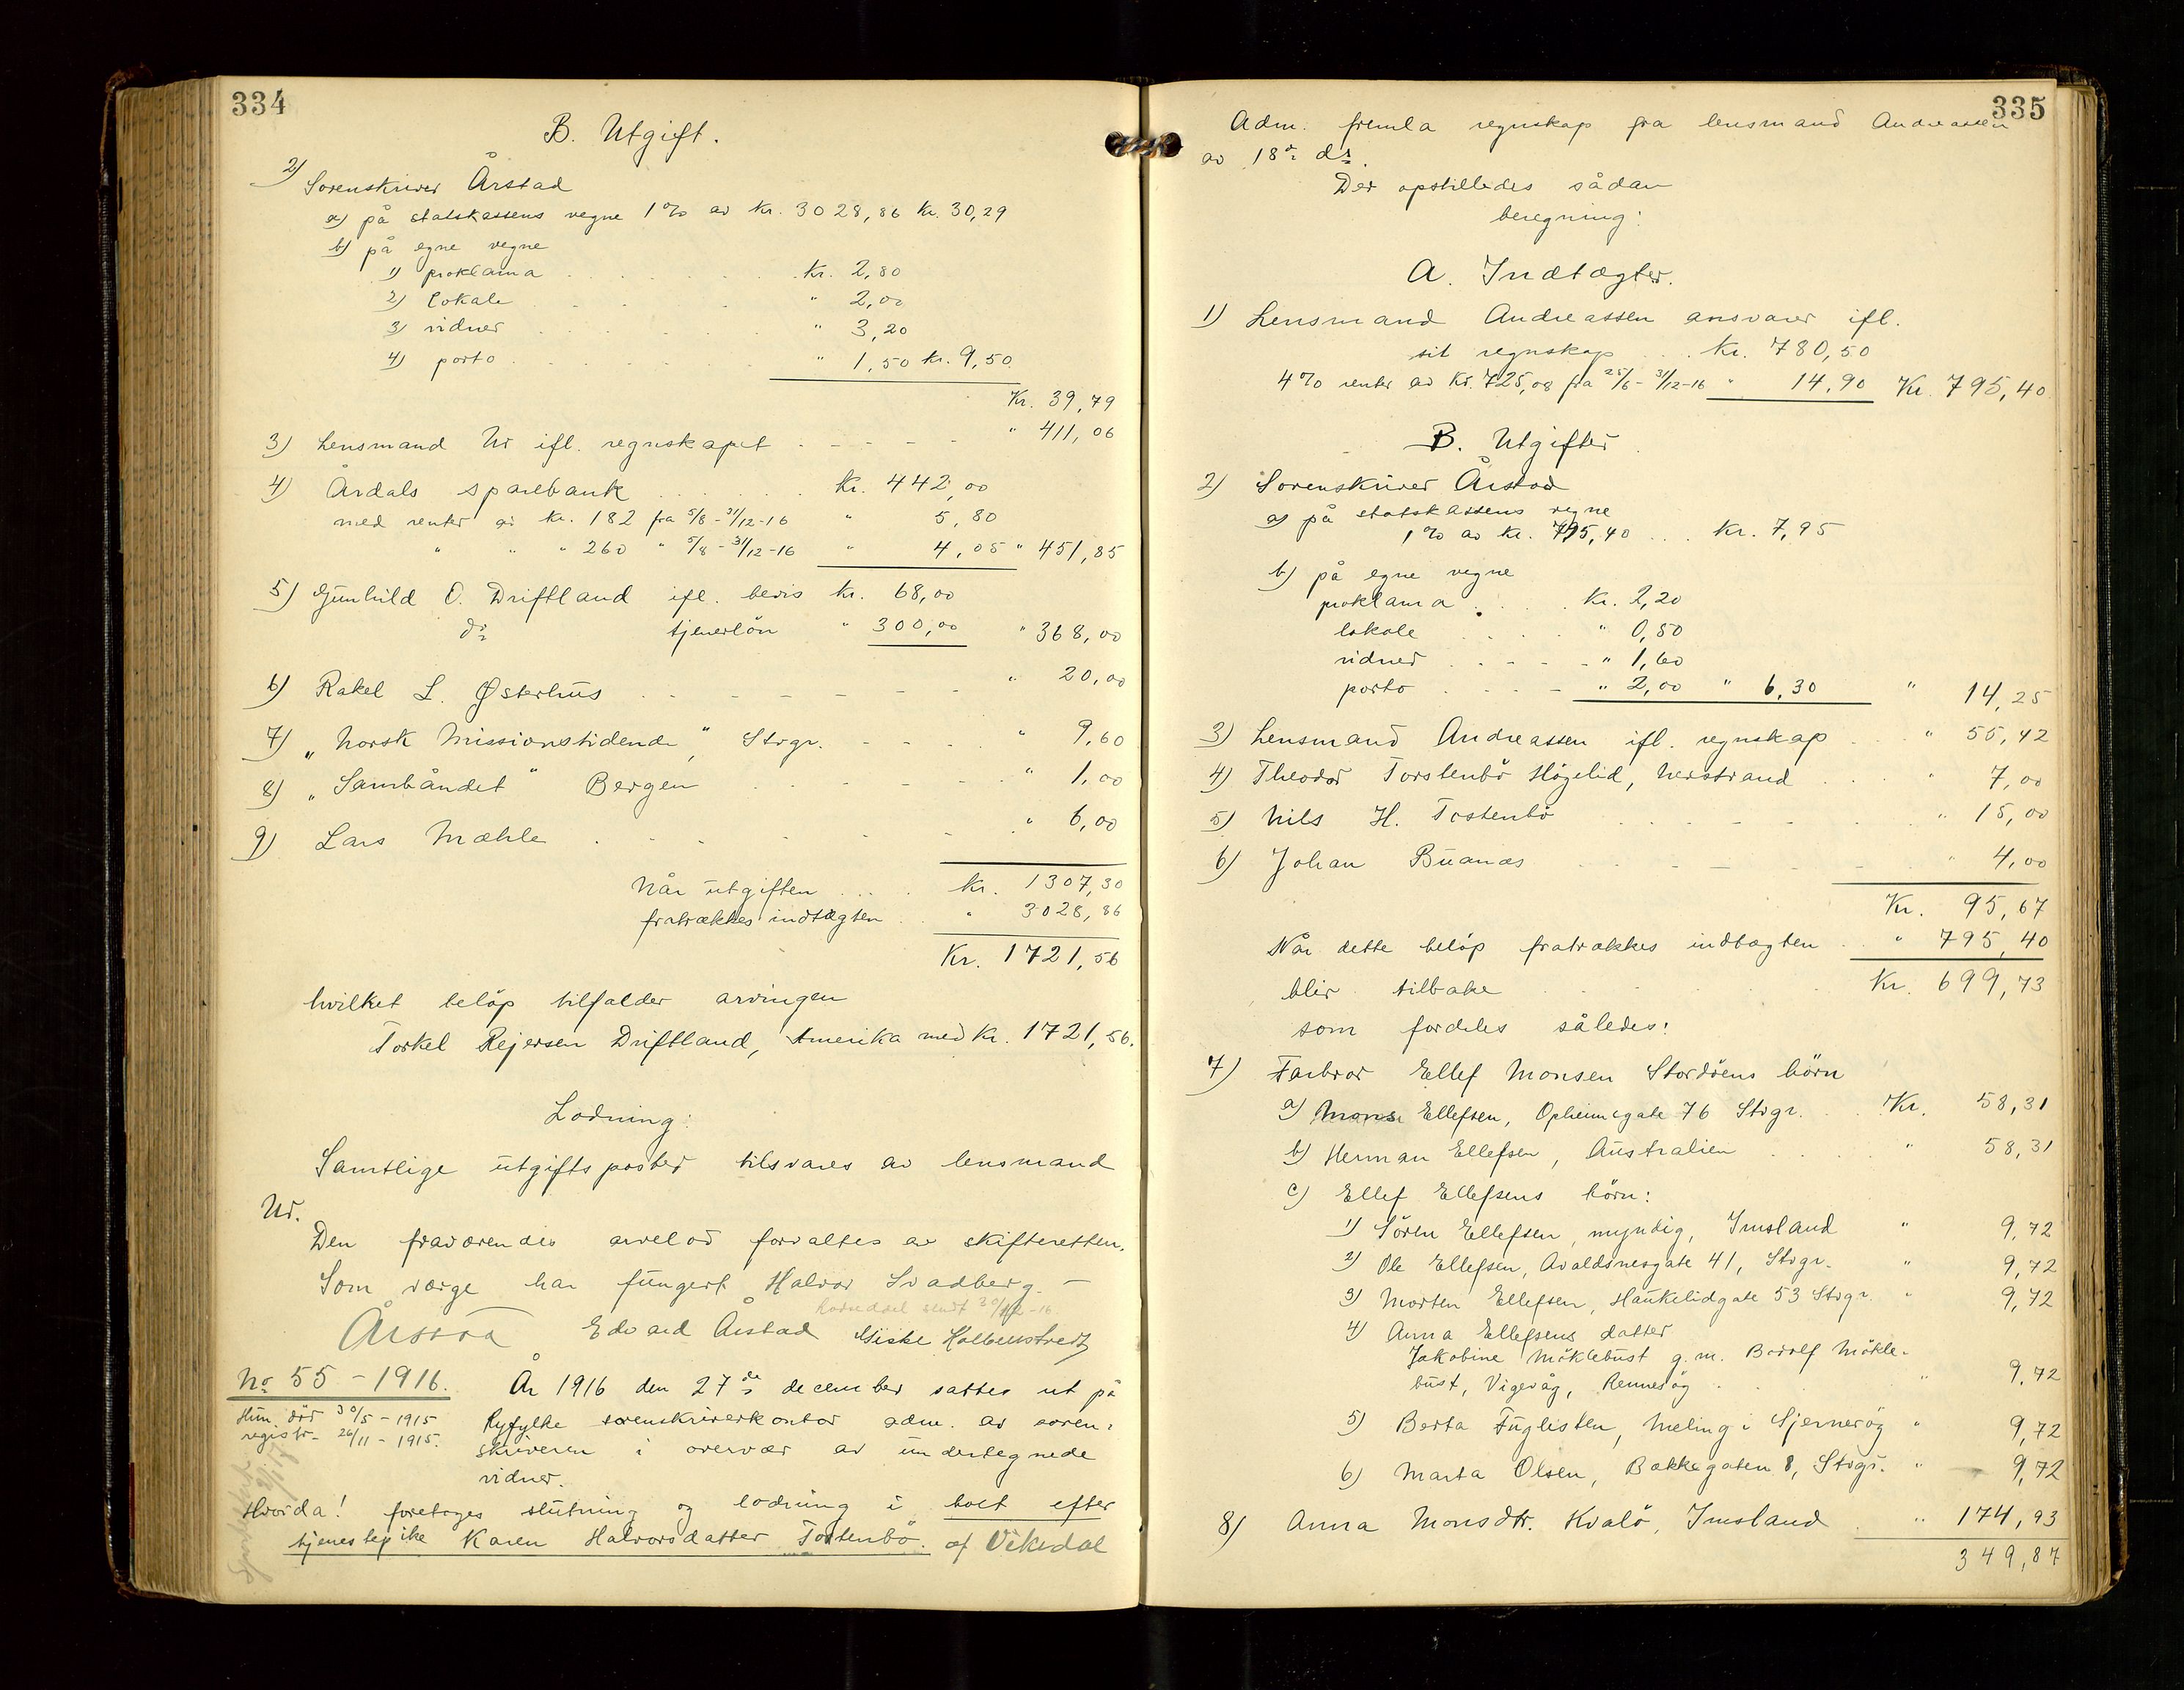 334
B. Utgift.
2) Sorenskriver Årstad
a) på statskassens vegne 1% av kr. 3028,86 Kr. 30,29
b) på egne vegne
1) proklama . . . . . Kr. 2,80
2) lokale . . . . . " 2,00
3) vidner . . . . . " 3,20
4) porto . . . . . " 1,50 Kr. 9,50
Kr. 39,79
3) Lensmand Ur ifl. regnskapet - - - - - " 411,06
4) Årdals sparebank . . . . . Kr. 442,00
med renter av kr. 182 fra 5/8 - 31/12-16 " 5,80
" " " 260 " 5/8 - 31/12-16 " 4,05 " 451,85
5) Gunhild O. Driftland ifl. bevis Kr. 68,00
do tjenerlön " 300,00 " 368,00
6) Rakel L. Østerhus . - - - - - " 20,00
7) "Norsk Missionstidende," Stvgr. - - - . " 9,60
8) "Sambåndet" Bergen . . . - - " 1,00
9) Lars Mæhle . . . . - " 6,00
Når utgiften . . . Kr. 1307,30
fratrækkes indtægten . " 3028,86
Kr. 1721,56
hvilket beløp tilfalder arvingen
Torkel Rejersen Driftland, Amerika med Kr. 1721,56.
Lodning:
Samtlige utgiftsposter tilsvares av lensmand
Ur.
Den fraværendes arvelod forvaltes av skifteretten.
Som værge har fungert Halvor Svadberg. -
sendt 30/12-16.
Årstad Edvard Årstad
No 55 - 1916. År 1916 den 27de december sattes ret på
Hun död 30/5 - 1915 Ryfylke sorenskriverkontor adm. av soren-
registr. 26/11 - 1915. skriveren i overvær av undertegnede
vidner.
Hvorda! foretoges slutning og lodning i boet efter
tjenestepike Karen Halvorsdatter Tostenbö. af Vikedal
335
Adm. fremla regnskap fra lensmand Andreassen
av 18de ds.
Der opstilledes sådan
beregning:
A. Indtægter.
1) Lensmand Andreassen ansvarer ifl.
sit regnskap . . . Kr. 780,50
4% renter av Kr. 725,08 fra 25/6 - 31/12-16 " 14,90 Kr. 795,40
B. Utgifter.
2) Sorenskriver Årstad
a) på statskassens vegne
1% av kr. 795,40 . . . Kr. 7,95
b) på egne vegne
proklama . . . . Kr. 2,20
lokale . . . . " 0,50
vidner . - - - - " 1,60
porto . - - - " 2,00 " 6,30 " 14,25
3) Lensmand Andreassen ifl. regnskap . . " 55,42
4) Theodor Torstenbö Högelid, Nerstrand . . . " 7,00
5) Nils H. Tostenbö . . - - - - . " 15,00
6) Johan Buanæs . . . - - - " 4,00
Kr. 95,67
Når dette beløp fratrækkes indtægten . . " 795,40
blir tilbake . . . . . Kr. 699,73
som fordeles således:
7) Farbror Ellef Monsen Stordöens börn
a) Mons Ellefsen, Opheimsgate 76 Stvgr. . . Kr. 58,31
b) Herman Ellefsen, Australien . . . . " 58,31
c) Ellef Ellefsens börn:
1) Sören Ellefsen, myndig, Imsland " 9,72
2) Ole Ellefsen, Avaldsnesgate 41, Stvgr. " 9,72
3) Morten Ellefsen, Haukelidgate 53 Stvgr. " 9,72
4) Anna Ellefsens datter
Jakobine Möklebust g.m. Bodolf Mökle-
bust, Vigevåg, Rennesøy . . . " 9,72
5) Berta Fuglisten, Meling i Sjernerøy " 9,72
6) Marta Olsen, Bakkegaten 8, Stvgr. " 9,72
8) Anna Monsdtr. Kvalö, Imsland . . " 174,93
349,87